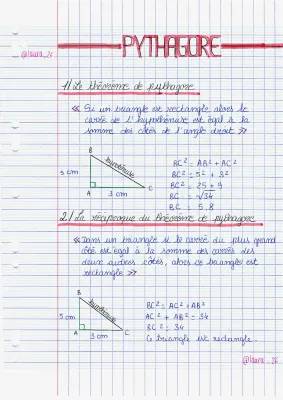 PYTHAGORE
@laura_26
1) Le théorème de pythagore
« Si un triangle est rectangle, alors le
carré de l'hypothénuse est égal à la
somme des côtés de l'angle droit »
B
hypothénuse
5 cm
A
3 cm
C
BC² = AB² + AC²
BC² = 5² + 3²
BC² = 25 + 9
BC = √34
BC = 5,8
2.) La réciproque du théorème de pythagore
« Dans un triangle si le carré du plus grand
côté est égal à la somme des carrés des
deux autres côtés, alors ce triangle est
rectangle »
B
hypothénuse
5 cm
A
3 cm
C
BC² = AC² + AB²
AC² + AB² = 34
BC² = 34
Ce triangle est rectangle.
@laura_26